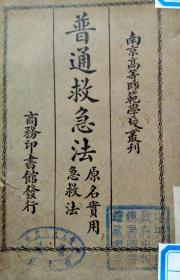 南京高等師範學校叢刊
普通救急法
原名實用
急救法
商務印書館發行